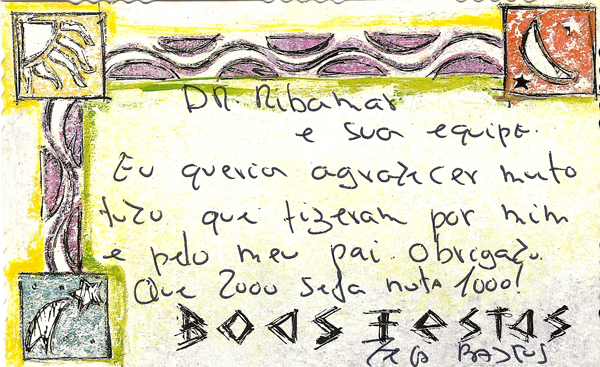 DR. Ribamar
e sua equipe.
Eu queria agradecer muito
tudo que fizeram por mim
e pelo meu pai. Obrigado.
Que 2000 seja nota 1000!
BOAS FESTAS
BASTOS